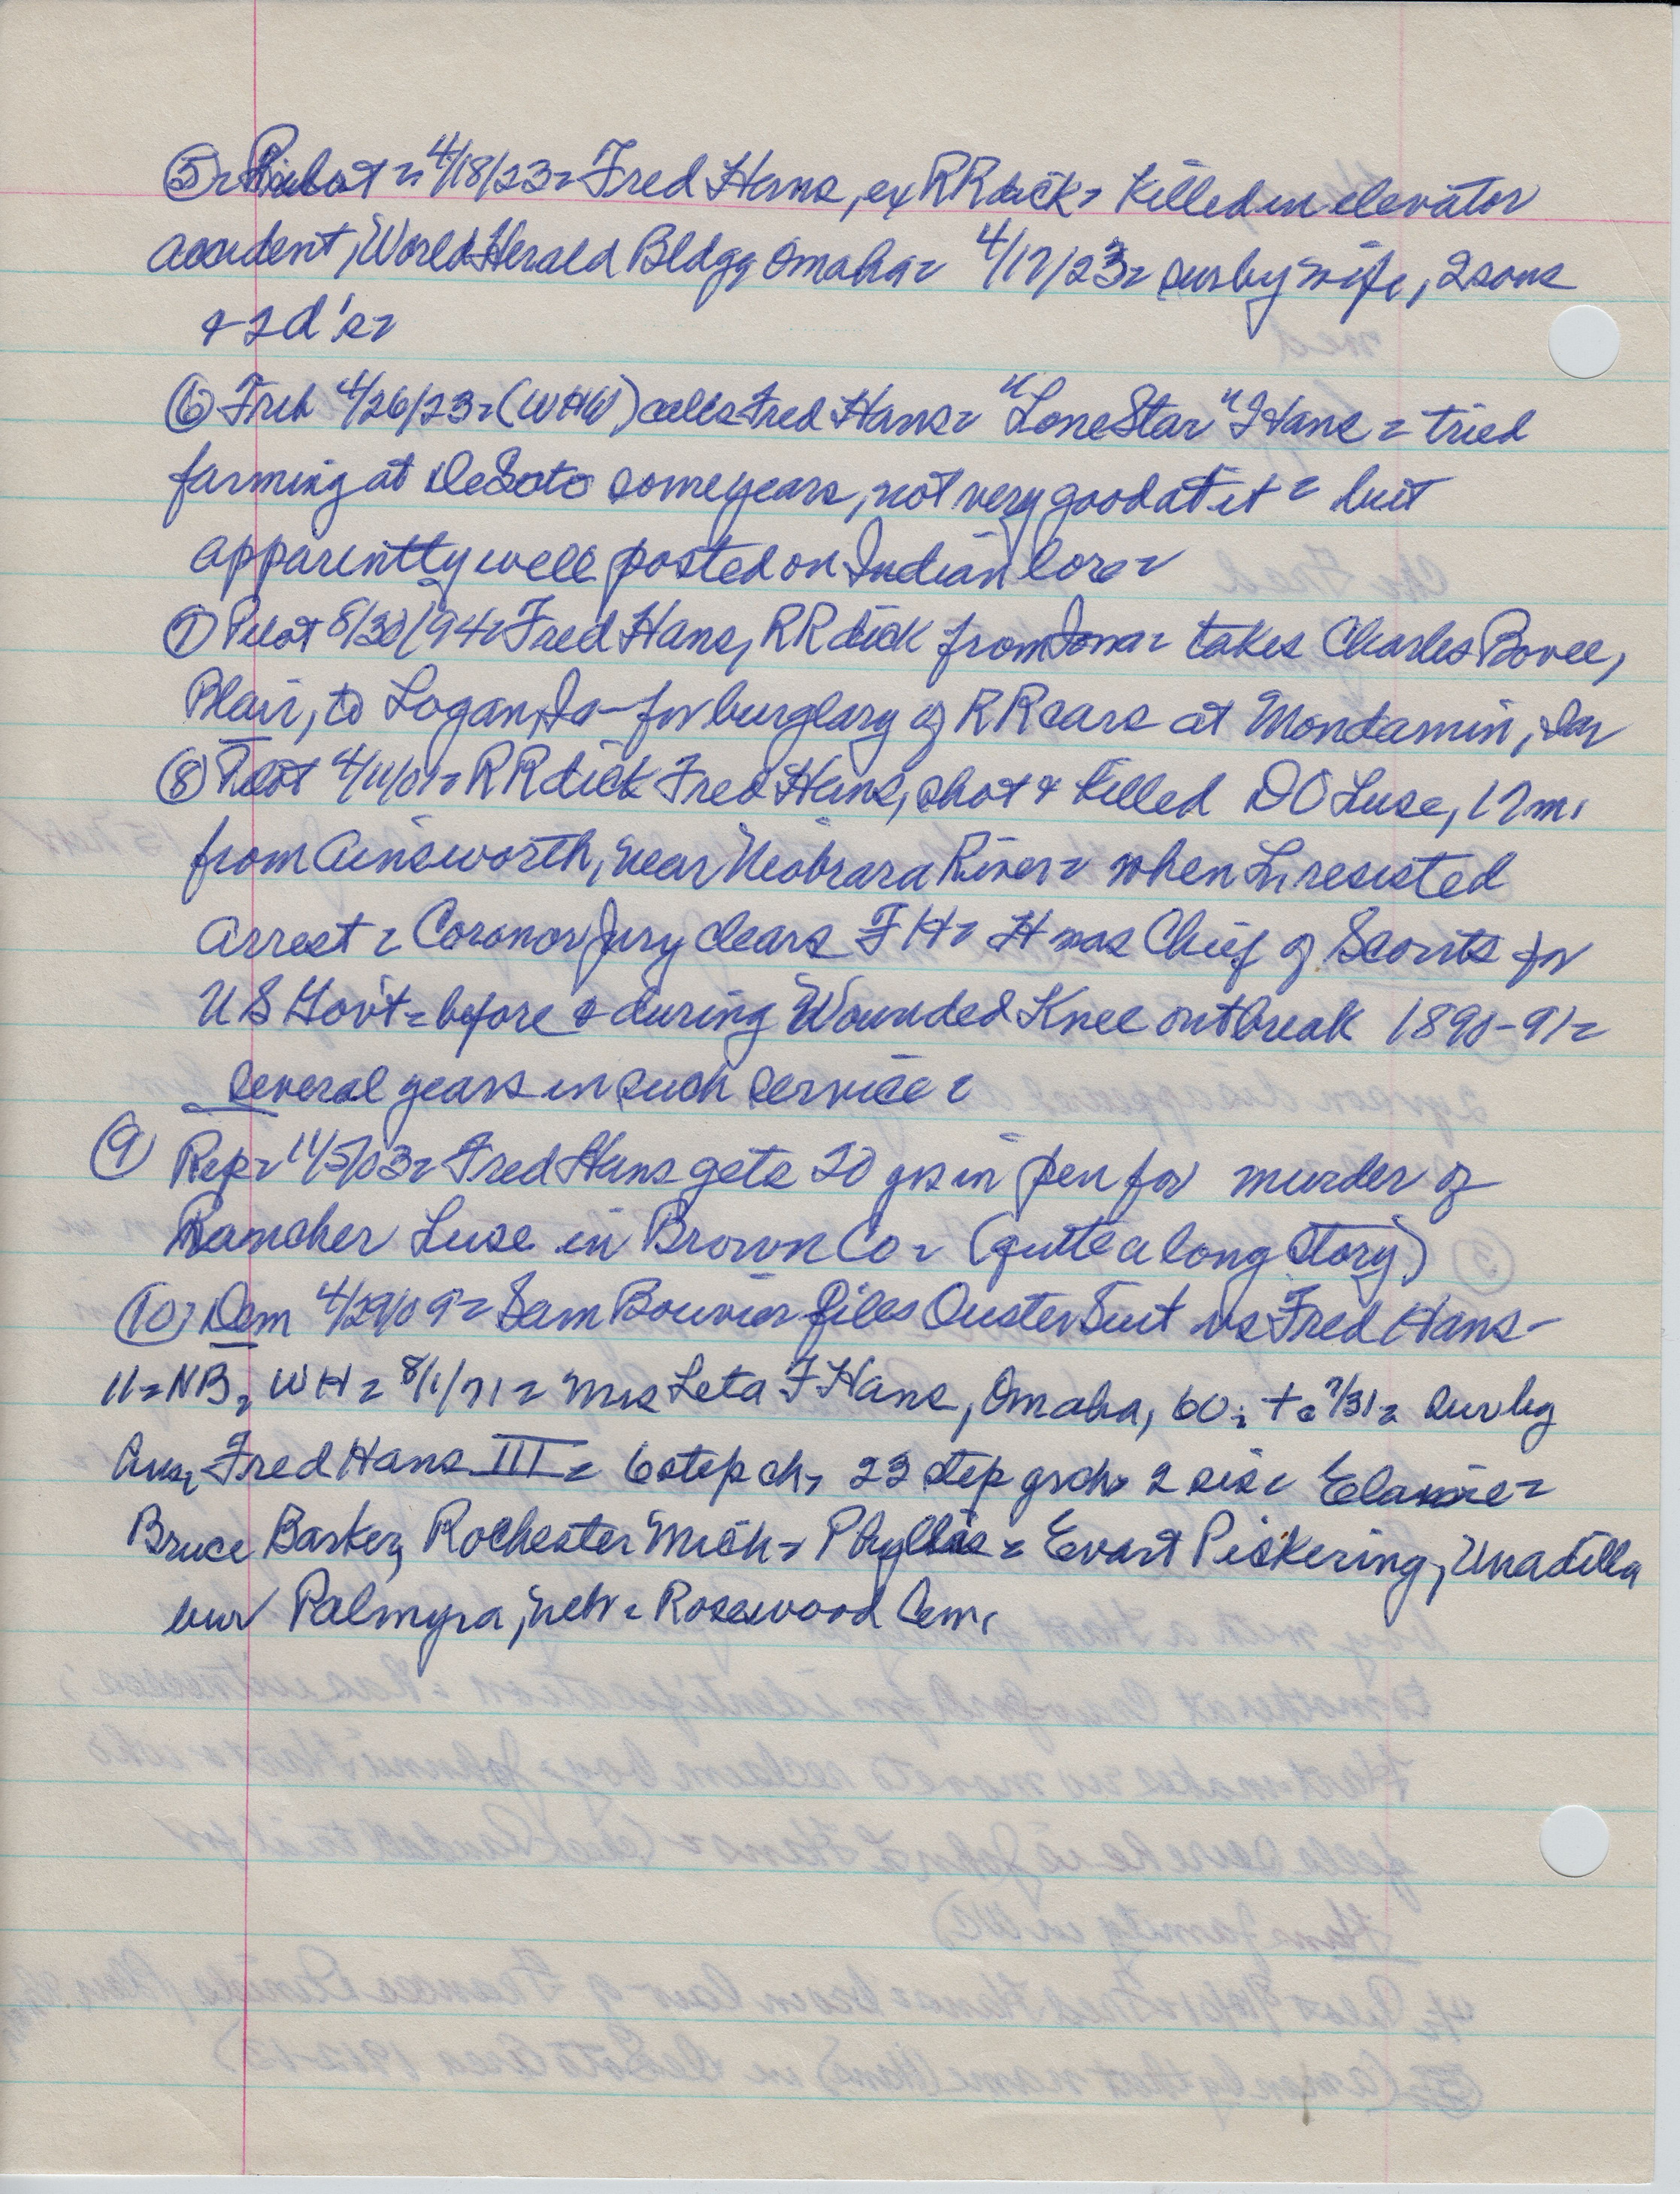 ⑤= Pilot = 4/18/23= Fred Hans, ex RR dick= killed in elevator
accident, World Herald Bldg, Omaha= 4/17/23= sur by wife, 2 sons
& 2 d's=
⑥ Trib 4/26/23= (WHW) calls Fred Hans= "Lone Star" Hans = tried
farming at DeSoto some years, not very good at it = but
apparently well posted on Indian lore=
⑦ Pilot 8/30/94= Fred Hans, RR dick from Iowa= takes Charles Bovee,
Blair, to Logan, Ia- for burglary of RR cars at Mondamin, Ia=
⑧ Pilot 4/11/01= RR dick Fred Hans, shot & killed DO Luse, 17 m.
from Ainsworth, near Niobrara River= when L. resisted
arrest = Coronor Jury clears FH= H was Chief of Scouts for
US Gov't= before & during Wounded Knee outbreak 1890-91=
several years in such service=
⑨ Rep= 11/5/03= Fred Hans gets 20 yrs in pen for murder of
Rancher Luse in Brown Co= (quite a long story)
⑩= Dem 4/29/09= Sam Bouvier files Ouster Suit vs Fred Hans-
11=NB= WH= 8/1/71= Mrs Leta F Hans, Omaha, 60= +=7/31= sur by
hus, Fred Hans III= 6 step ch, 23 step grch= 2 sis= =
Bruce Barker, Rochester Mich= Phyllis = Evart Pickering, Unadilla
bur Palmyra, Neb= Rosewood Cem.